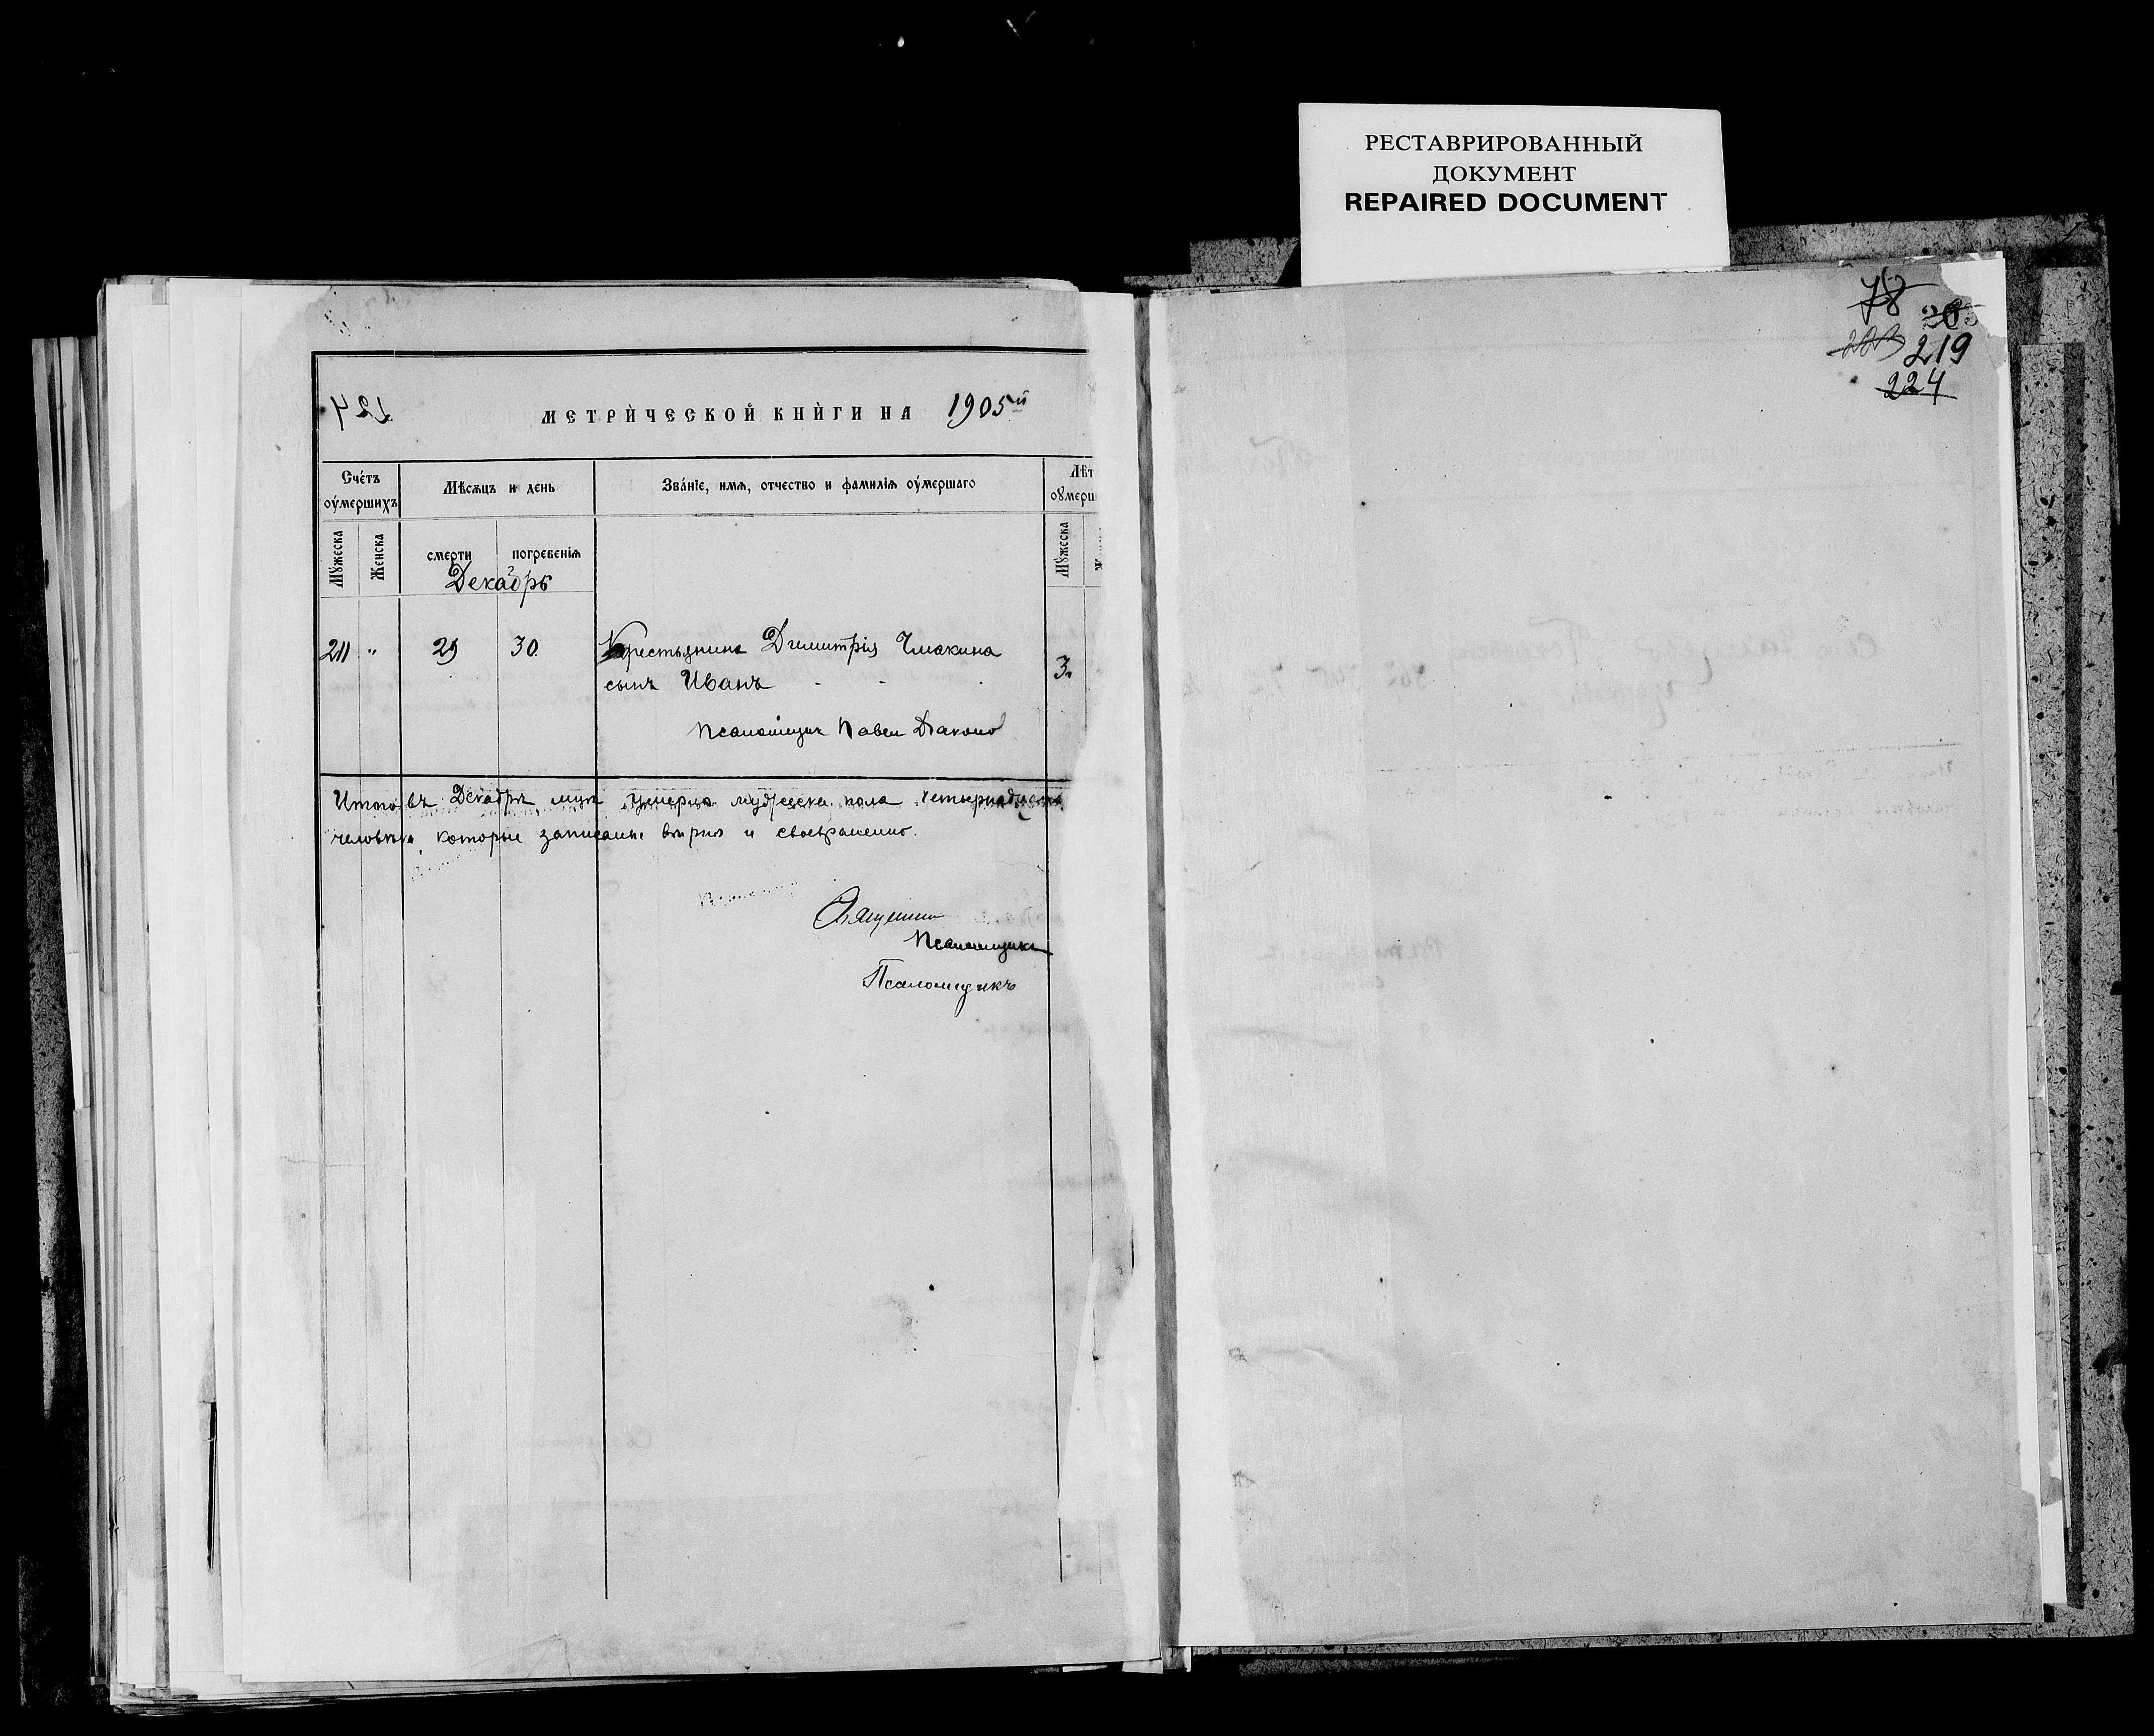 РЕСТАВРИРОВАННЫЙ
ДОКУМЕНТ
REPAIRED DOCUMENT
78 205
223 219
224
МЕТРИ́ЧЕСКОЙ КНИ́ГИ НА 1905й
Сче́тъ оу҆мершихъ
Мѣсѧцъ и день
Зва́нїе, имѧ, отчество и фамилїѧ оу҆мершаго
Лѣт
оу҆мерш
Мꙋжеска
Женска
смерти
погребенїѧ
Мꙋжеска
Декабрь
211 " 29 30 Крестьянина Димитрія Чмакина
сынъ Иванъ 3.
Псаломщикъ Павел
Итого въ Декабрѣ умерло мужеска пола
человѣкъ которые записаны вѣрно и своевременно.
Священник
Псаломщикъ
Псаломщикъ